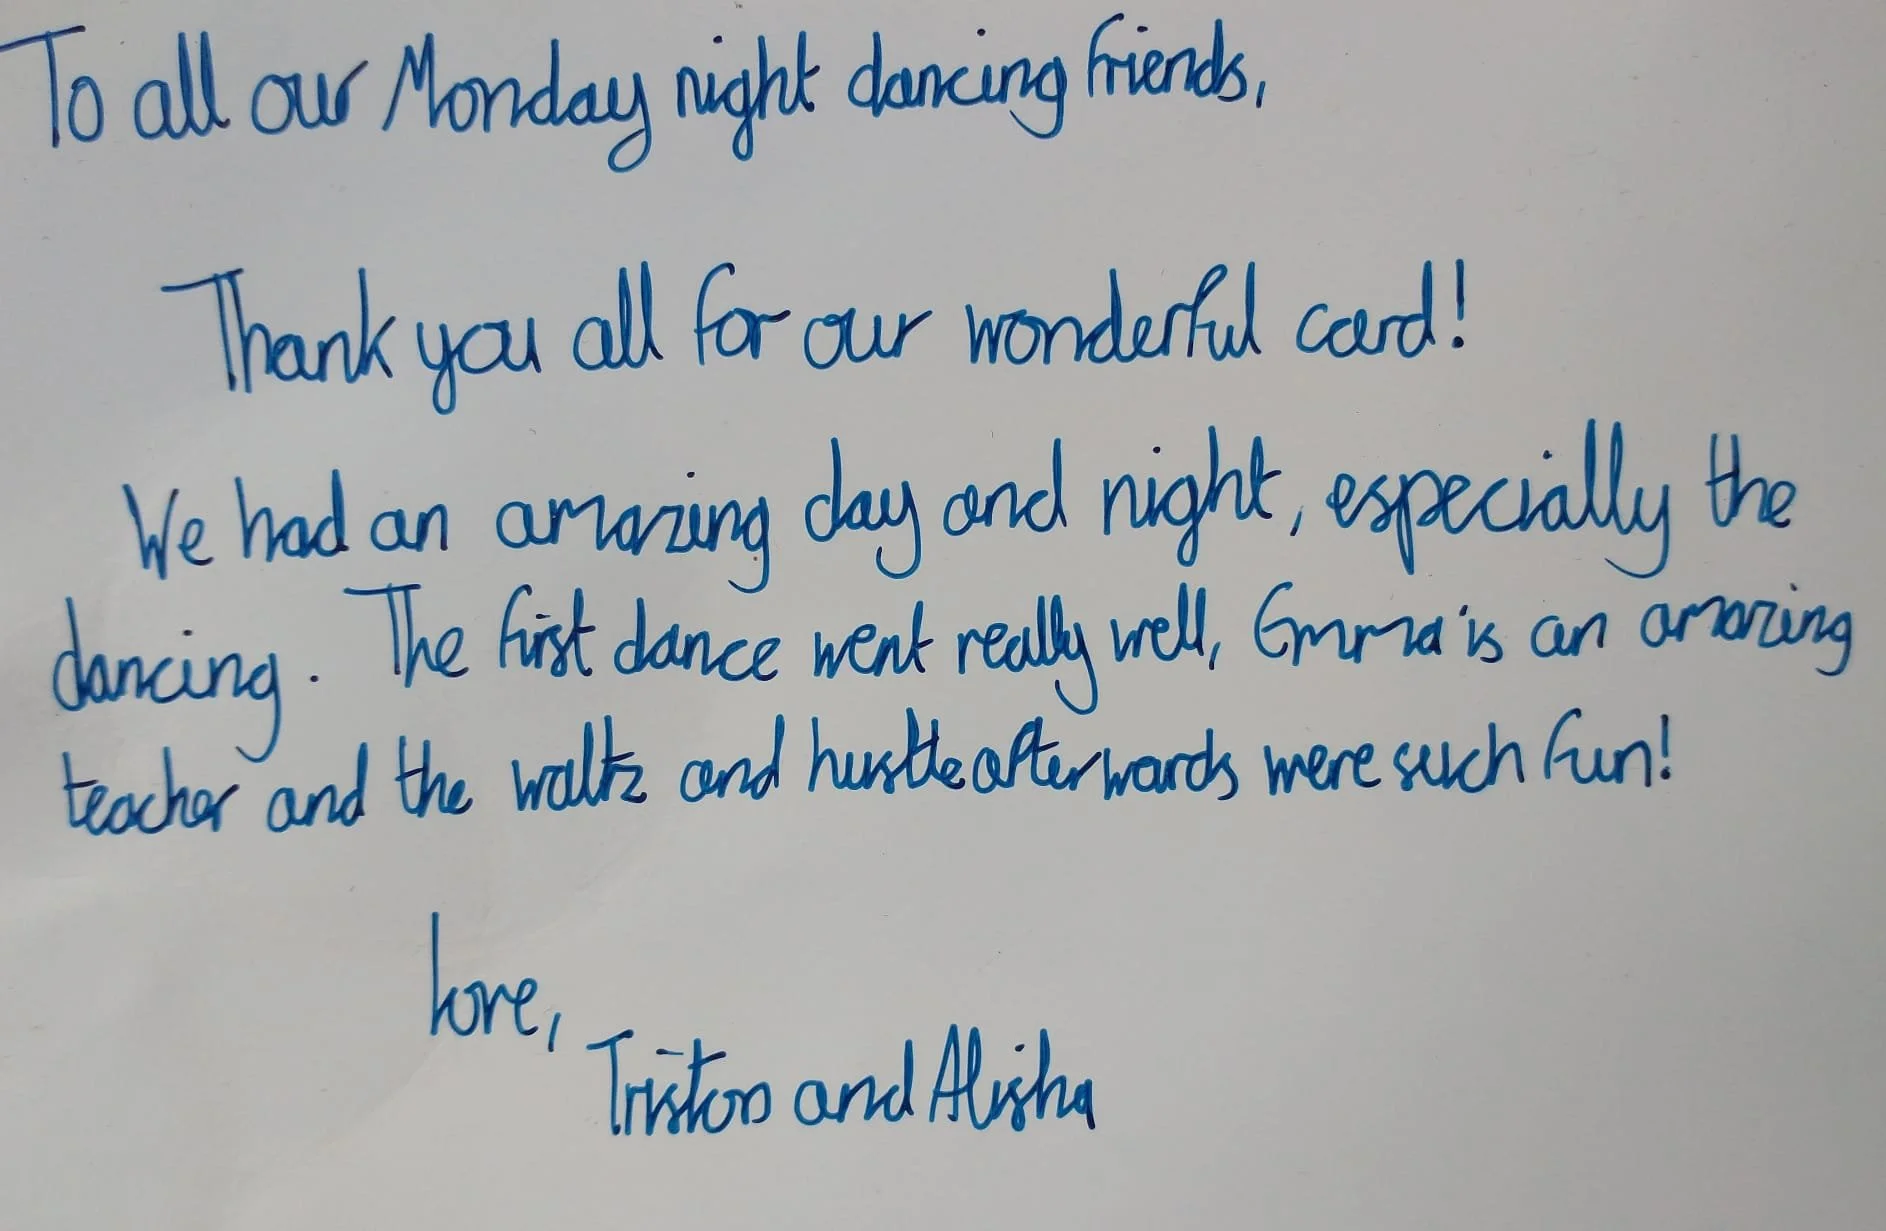 To all our Monday night dancing friends,
Thank you all for our wonderful card!
We had an amazing day and night, especially the
dancing. The first dance went really well, Emma is an amazing
teacher and the waltz and hustle afterwards were such fun!
love,
Tristan and Alisha